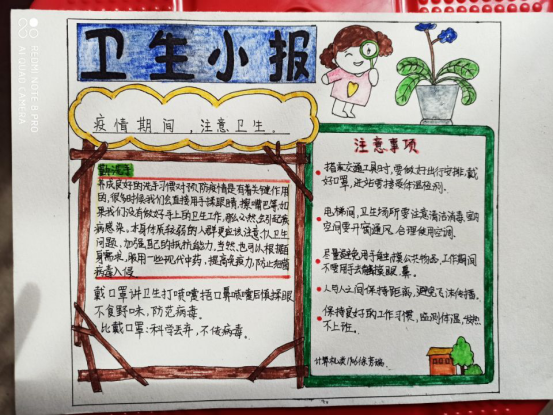 卫生小报
疫情期间,注意卫生。
勤洗手
养成良好的洗手习惯对预防疫情是有着关键作用
的,很多时候我们会直接用手揉眼睛,擦嘴巴等,如
果我们没有做好手上的卫生工作,那么必然会引起疾
病感染,本身体质较弱的人群更应该注意个人卫生
问题,加强自己的抵抗能力,当然,也可以根据自
身需求,服用一些现代中药,提高免疫力,防止细菌
病毒入侵。
戴口罩讲卫生打喷嚏捂口鼻喷嚏后慎揉眼
不食野味,防范病毒。
比戴口罩:科学丢弃,不传病毒。
注意事项
指乘交通工具时,要做好出行安排,戴
好口罩,进站等接受体温检测。
电梯间,卫生场所要注意清洁消毒,室内
空间要开窗通风,合理使用空调。
尽量避免用手触摸公共物品,工作期间
不要用手去触摸眼鼻。
人与人之间保持距离,避免飞沫传播。
保持良好的工作习惯,监测体温,发热
不上班。
REDMI NOTE 8 PRO
AI QUAD CAMERA